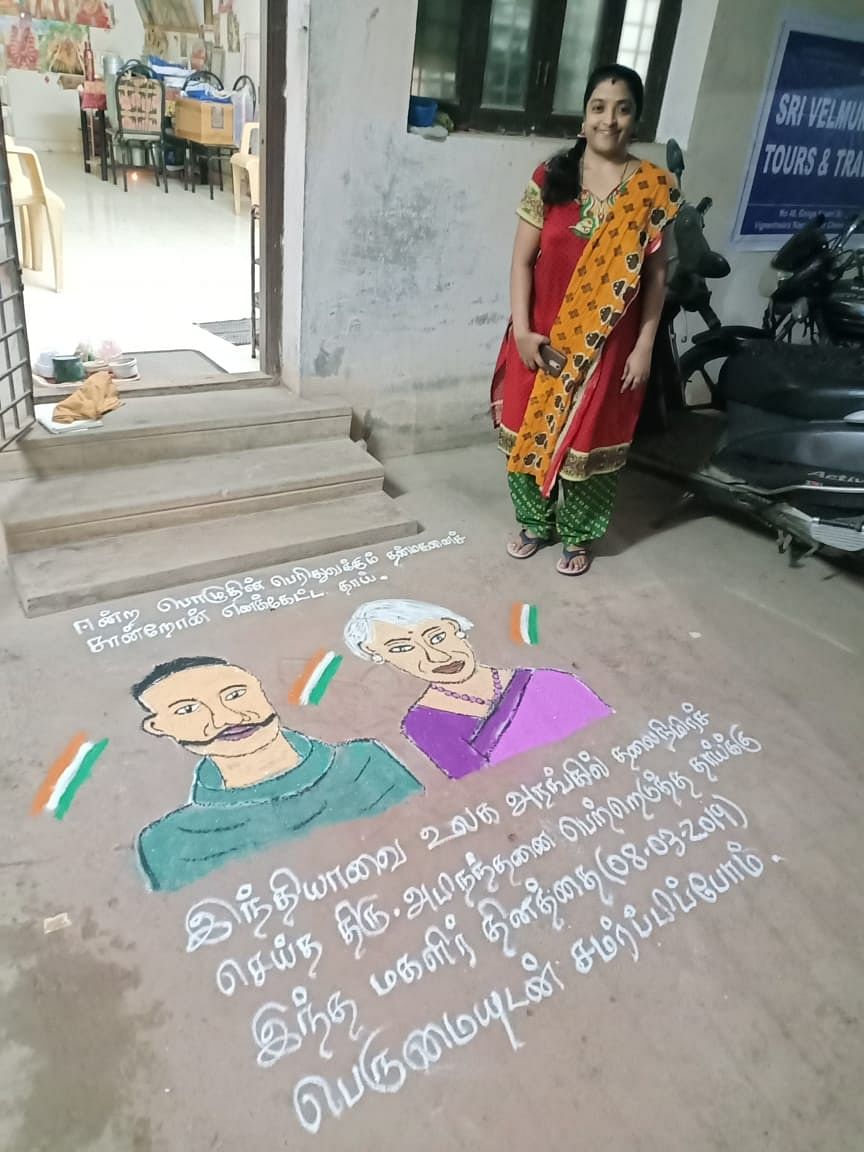 SRI VELMU
TOURS & TRA
Activ
ஈன்ற பொழுதின் பெரிதுவக்கும் தன்மகனைச்
சான்றோன் எனக்கேட்ட தாய்.
இந்தியாவை உலக அரங்கில் தலைநிமிரச்
செய்த திரு. அபிநந்தனை பெற்றெடுத்த தாய்க்கு
இந்த மகளிர் தினத்தை (08.03.2019)
பெருமையுடன் சமர்ப்பிப்போம்.